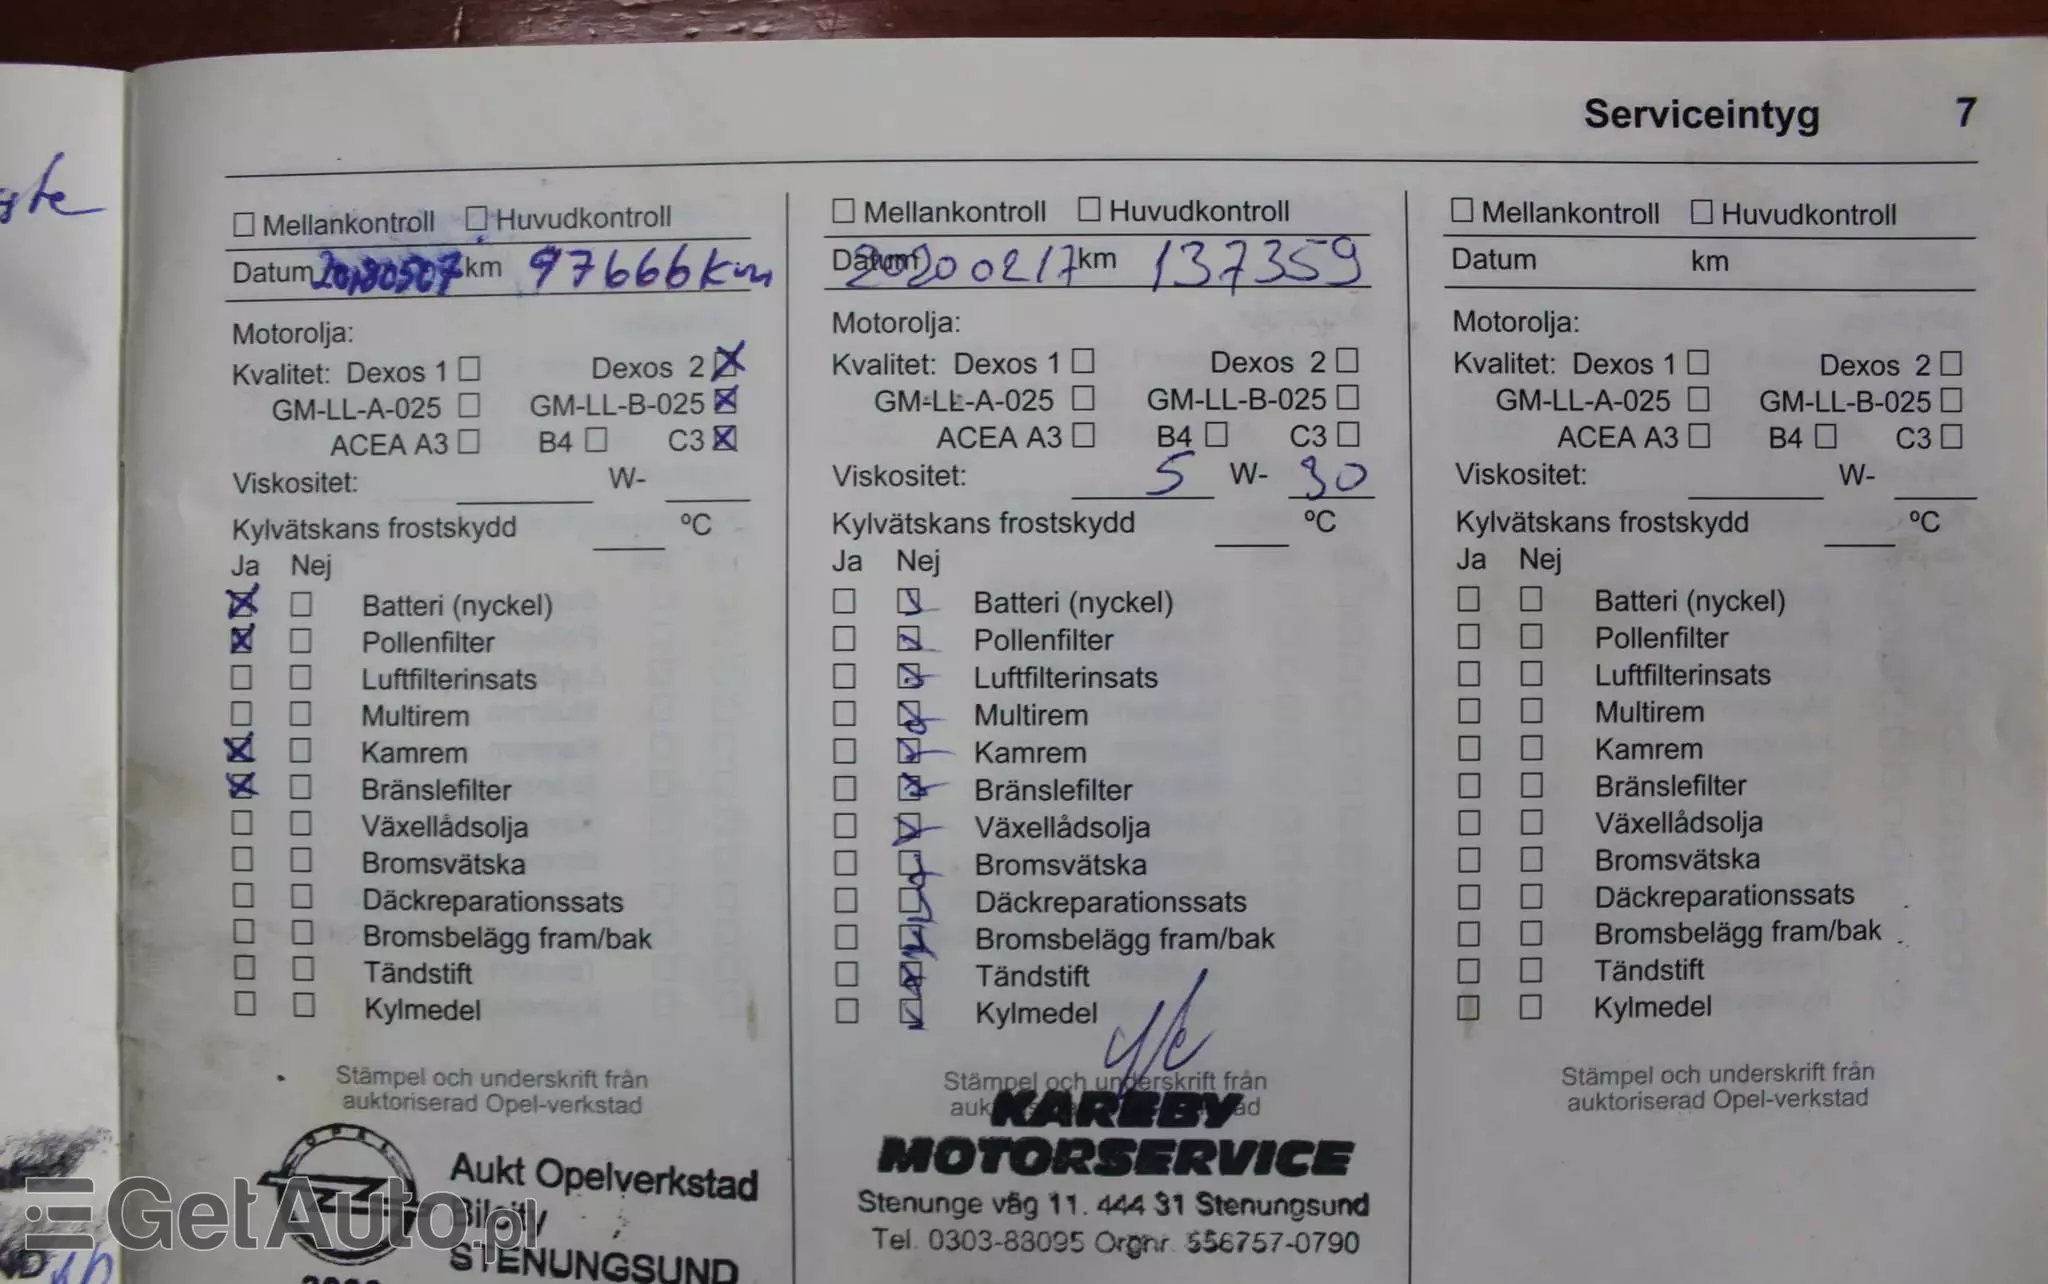 Serviceintyg 7
Mellankontroll Huvudkontroll
Datum 20180507 km 97666 km
Motorolja:
Kvalitet: Dexos 1 Dexos 2
GM-LL-A-025 GM-LL-B-025
ACEA A3 B4 C3
Viskositet: W-
Kylvätskans frostskydd °C
Ja Nej
Batteri (nyckel)
Pollenfilter
Luftfilterinsats
Multirem
Kamrem
Bränslefilter
Växellådsolja
Bromsvätska
Däckreparationssats
Bromsbelägg fram/bak
Tändstift
Kylmedel
Stämpel och underskrift från
auktoriserad Opel-verkstad
OPEL
Aukt Opelverkstad
Bilcity
STENUNGSUND
Mellankontroll Huvudkontroll
Datum 20200217 km 137359
Motorolja:
Kvalitet: Dexos 1 Dexos 2
GM-LL-A-025 GM-LL-B-025
ACEA A3 B4 C3
Viskositet: 5 W- 30
Kylvätskans frostskydd °C
Ja Nej
Batteri (nyckel)
Pollenfilter
Luftfilterinsats
Multirem
Kamrem
Bränslefilter
Växellådsolja
Bromsvätska
Däckreparationssats
Bromsbelägg fram/bak
Tändstift
Kylmedel
Stämpel och underskrift från
KAREBY
MOTORSERVICE
Stenunge väg 11. 444 31 Stenungsund
Tel. 0303-83095 Orgnr. 556757-0790
Mellankontroll Huvudkontroll
Datum km
Motorolja:
Kvalitet: Dexos 1 Dexos 2
GM-LL-A-025 GM-LL-B-025
ACEA A3 B4 C3
Viskositet: W-
Kylvätskans frostskydd °C
Ja Nej
Batteri (nyckel)
Pollenfilter
Luftfilterinsats
Multirem
Kamrem
Bränslefilter
Växellådsolja
Bromsvätska
Däckreparationssats
Bromsbelägg fram/bak
Tändstift
Kylmedel
Stämpel och underskrift från
auktoriserad Opel-verkstad
GetAuto.pl